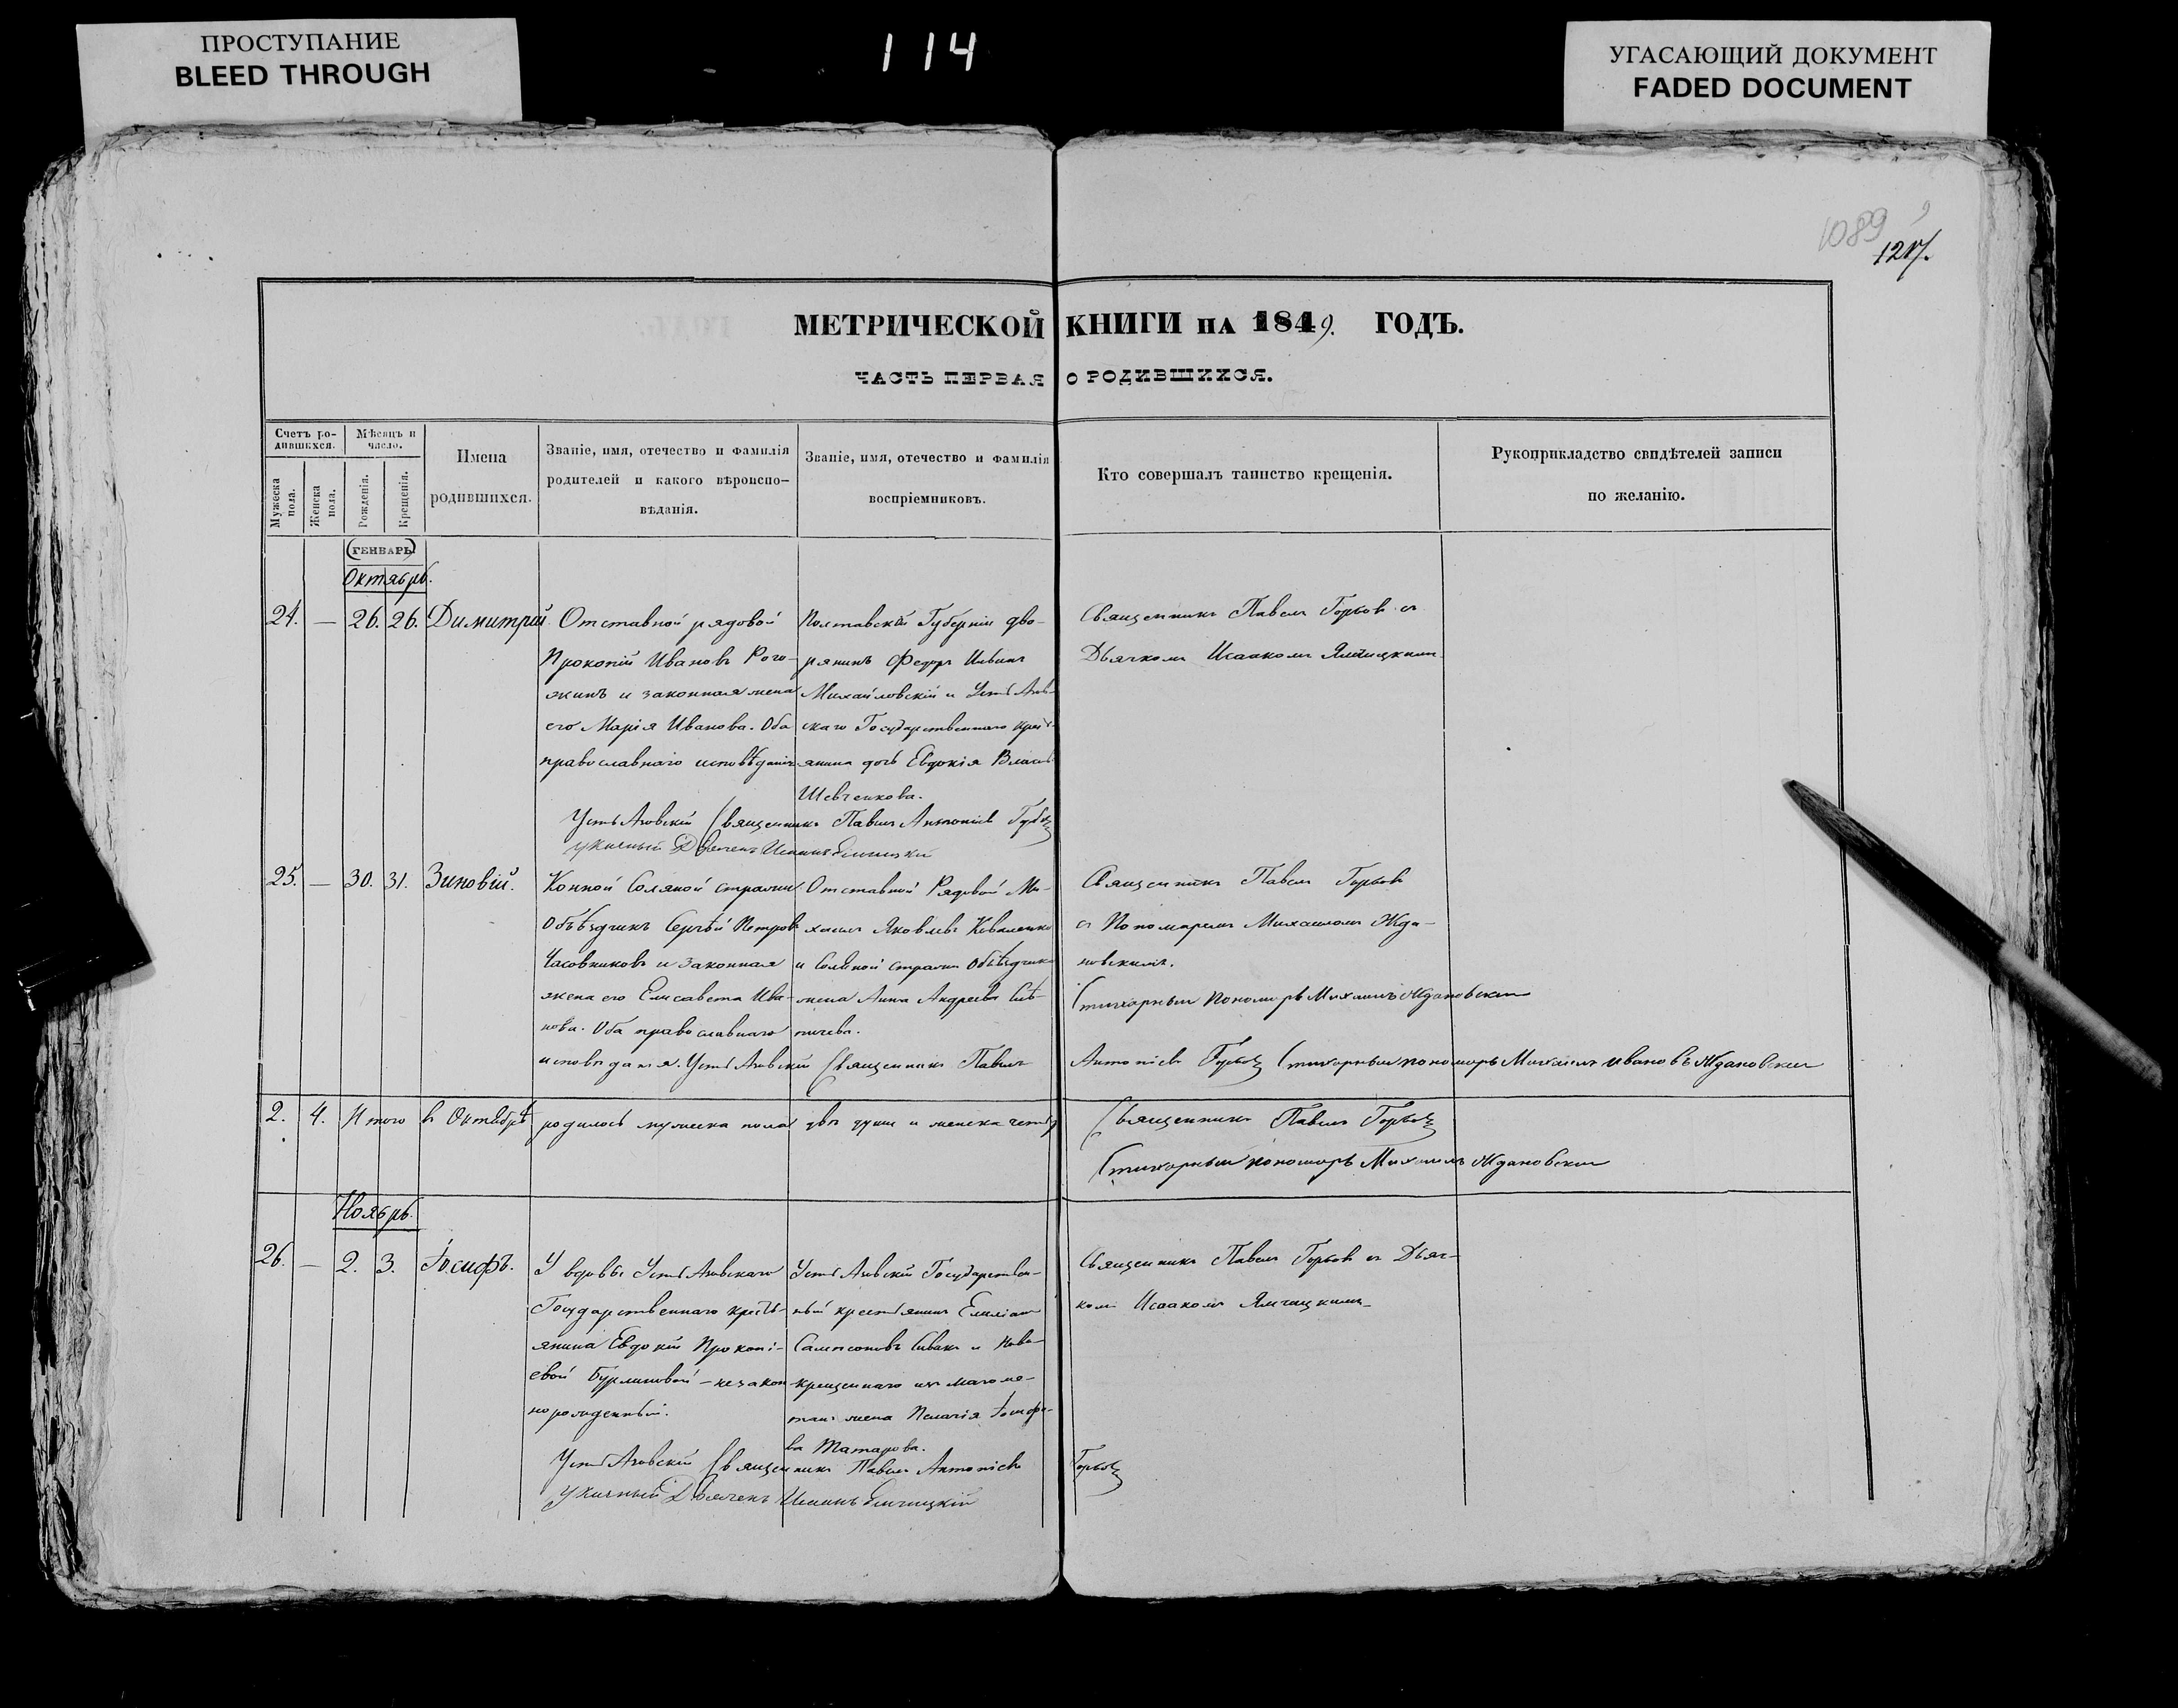 ПРОСТУПАНИЕ
BLEED THROUGH
114
УГАСАЮЩИЙ ДОКУМЕНТ
FADED DOCUMENT
1089
МЕТРИЧЕСКОЙ КНИГИ НА 1849. ГОДЪ.
ЧАСТЬ ПЕРВАЯ О РОДИВШИХСЯ.
Счетъ ро-
дившихся.
Мужеска пола.
Женска пола.
Мѣсяцъ и
число.
Рожденія.
Крещенія.
Имена
родившихся.
Званіе, имя, отечество и фамилія
родителей и какого вѣроиспо-
вѣданія.
Званіе, имя, отечество и фамилія
воспріемниковъ.
Кто совершалъ таинство крещенія.
Рукоприкладство свидѣтелей записи
по желанію.
(ГЕНВАРЬ)
Октябрь.
24. — 26. 26. Димитрій
Отставной рядовой
Прокопій Ивановъ Рого-
жинъ и законная жена
его Марія Иванова. Оба
православнаго исповѣданія
Полтавской Губерніи дво-
рянинъ Федоръ
Михайловскій и Усть Азов-
скаго Государственнаго крест-
янина дочь Евдокія
Шевченкова.
Священникъ Павелъ Горбов съ
Дьячкомъ Исаакомъ Ямчицкимъ
Усть Азовскій Священникъ Павелъ Антоніевъ
Дьячекъ
25. — 30. 31. Зиновій.
Конной Соляной стражи
Объѣздчикъ Сергѣй Петровъ
Часовниковъ и законная
жена его Елисавета Ива-
нова. Оба православнаго
исповѣданія.
Отставной Рядовой Ми-
хаилъ Яковлевъ Коваленко
и Соляной стражи Объѣздчика
жена Анна Андреева
Священникъ Павелъ Горбов
съ Пономаремъ Михаиломъ Жда-
новскимъ.
Стихарный Пономарь Михаилъ Ждановскій
Усть Азовскій Священникъ Павелъ Антоніевъ Горбов Стихарный пономарь Михаилъ Ивановъ Ждановскій
2. 4. Итого въ Октябрѣ родилось мужеска пола двѣ души и женска четыре
Священникъ Павелъ Горбов
Стихарный пономарь Михаилъ Ждановскій
Ноябрь.
26. — 2. 3. Іосифъ.
У вдовы Усть Азовскаго
Государственнаго крестъ-
янина Евдокіи Прокопі-
евой Бурликовой – незакон-
норожденный.
Усть Азовскій Государствен-
ный крестьянинъ Емиліанъ
Сампсоновъ Сивакъ и Ново-
крещеннаго изъ магоме-
танъ жена Пелагія Іосифо-
ва Татарова.
Священникъ Павелъ Горбов съ Дьяч-
комъ Исаакомъ Ямчицкимъ
Усть Азовскій Священникъ Павелъ Антоніевъ Горбов
Дьячекъ